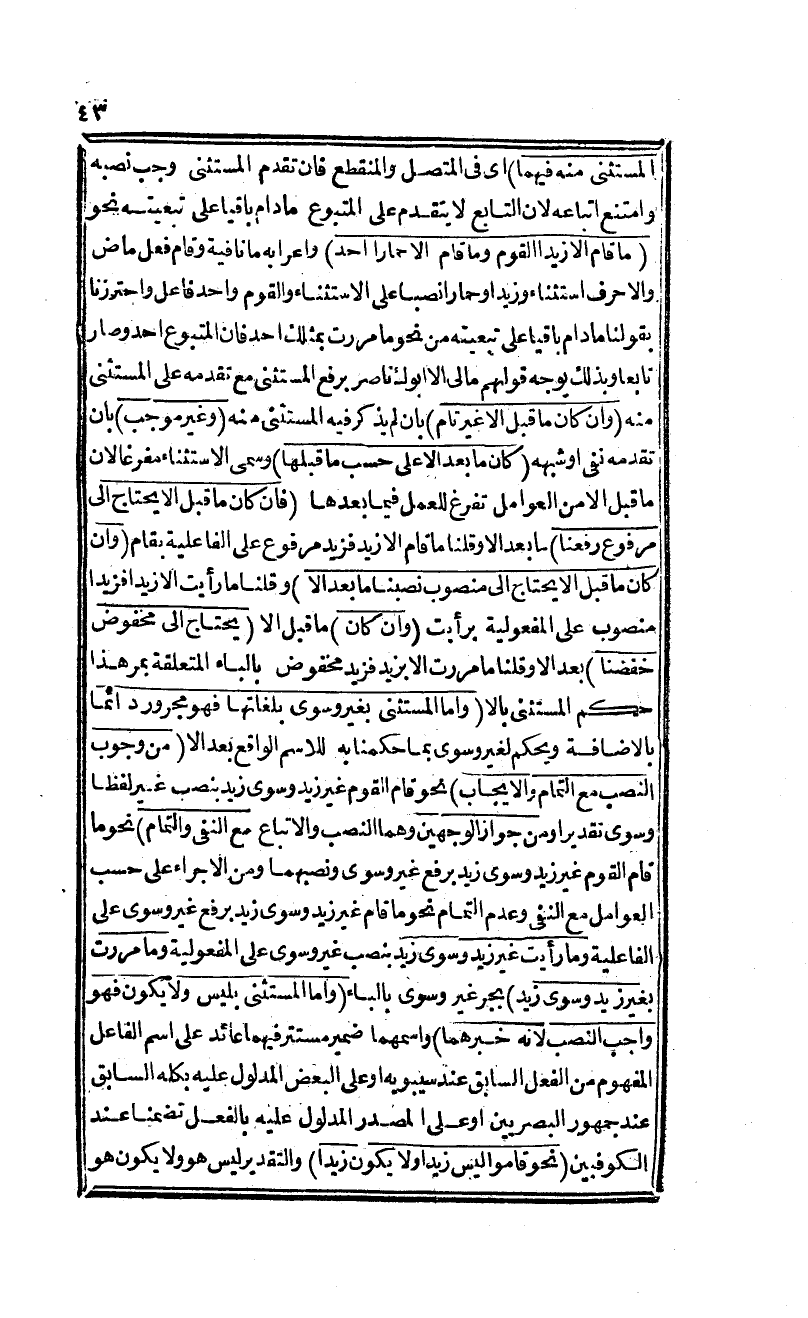 ٤٣
المستثنى منه فيهما) اى فى المتصل والمنقطع فان تقدم المستثنى وجب نصبه
وامتنع اتباعه لان التابع لا يتقدم على المتبوع مادام باقيا على تبعيته نحو
( ما قام الا زيدا القوم وما قام الا حمارا احد) واعرابه ما نافية وقام فعل ماض
والا حرف استثناء وزيدا وحمارا نصبا على الاستثناء والقوم واحد فاعل واحترزنا
بقولنا مادام باقيا على تبعيته من نحو ما مررت بمثلك احد فان المتبوع احد وصار
تابعا وبذلك يوجه قولهم مالى الا ابوك ناصر برفع المستثنى مع تقدمه على المستثنى
منه (وان كان ما قبل الا غير تام) بان لم يذكر فيه المستثنى منه (وغير موجب) بان
تقدمه نفى او شبهه (كان ما بعد الا على حسب ما قبلها) وسمى الاستثناء مفرغا لان
ما قبل الا من العوامل تفرغ للعمل فيما بعدها (فان كان ما قبل الا يحتاج الى
مرفوع رفعنا) ما بعد الا وقلنا ما قام الا زيد فزيد مرفوع على الفاعلية بقام (وان
كان ما قبل الا يحتاج الى منصوب نصبنا ما بعد الا) وقلنا ما رأيت الا زيدا فزيدا
منصوب على المفعولية برأيت (وان كان) ما قبل الا (يحتاج الى مخفوض
خفضنا) بعد الا وقلنا ما مررت الا بزيد فزيد مخفوض بالباء المتعلقة بمر هذا
حكم المستثنى بالا (واما المستثنى بغير وسوى بلغاتها فهو مجرور دائما
بالاضافة ويحكم لغير وسوى بما حكمنا به للاسم الواقع بعد الا (من وجوب
النصب مع التمام والايجاب) نحو قام القوم غير زيد وسوى زيد بنصب غير لفظا
وسوى تقديرا ومن جواز الوجهين وهما النصب والاتباع مع النفى والتمام) نحو ما
قام القوم غير زيد وسوى زيد برفع غير وسوى ونصبهما ومن الاجراء على حسب
العوامل مع النفى وعدم التمام نحو ما قام غير زيد وسوى زيد برفع غير وسوى على
الفاعلية وما رأيت غير زيد وسوى زيد بنصب غير وسوى على المفعولية وما مررت
بغير زيد وسوى زيد) بجر غير وسوى بالباء (واما المستثنى بليس ولا يكون فهو
واجب النصب لانه خبرهما) واسمهما ضمير مستتر فيهما عائد على اسم الفاعل
المفهوم من الفعل السابق عند سيبويه او على البعض المدلول عليه بكله السابق
عند جمهور البصريين او على المصدر المدلول عليه بالفعل تضمنا عند
الكوفيين (نحو قاموا ليس زيدا ولا يكون زيدا) والتقدير ليس هو ولا يكون هو